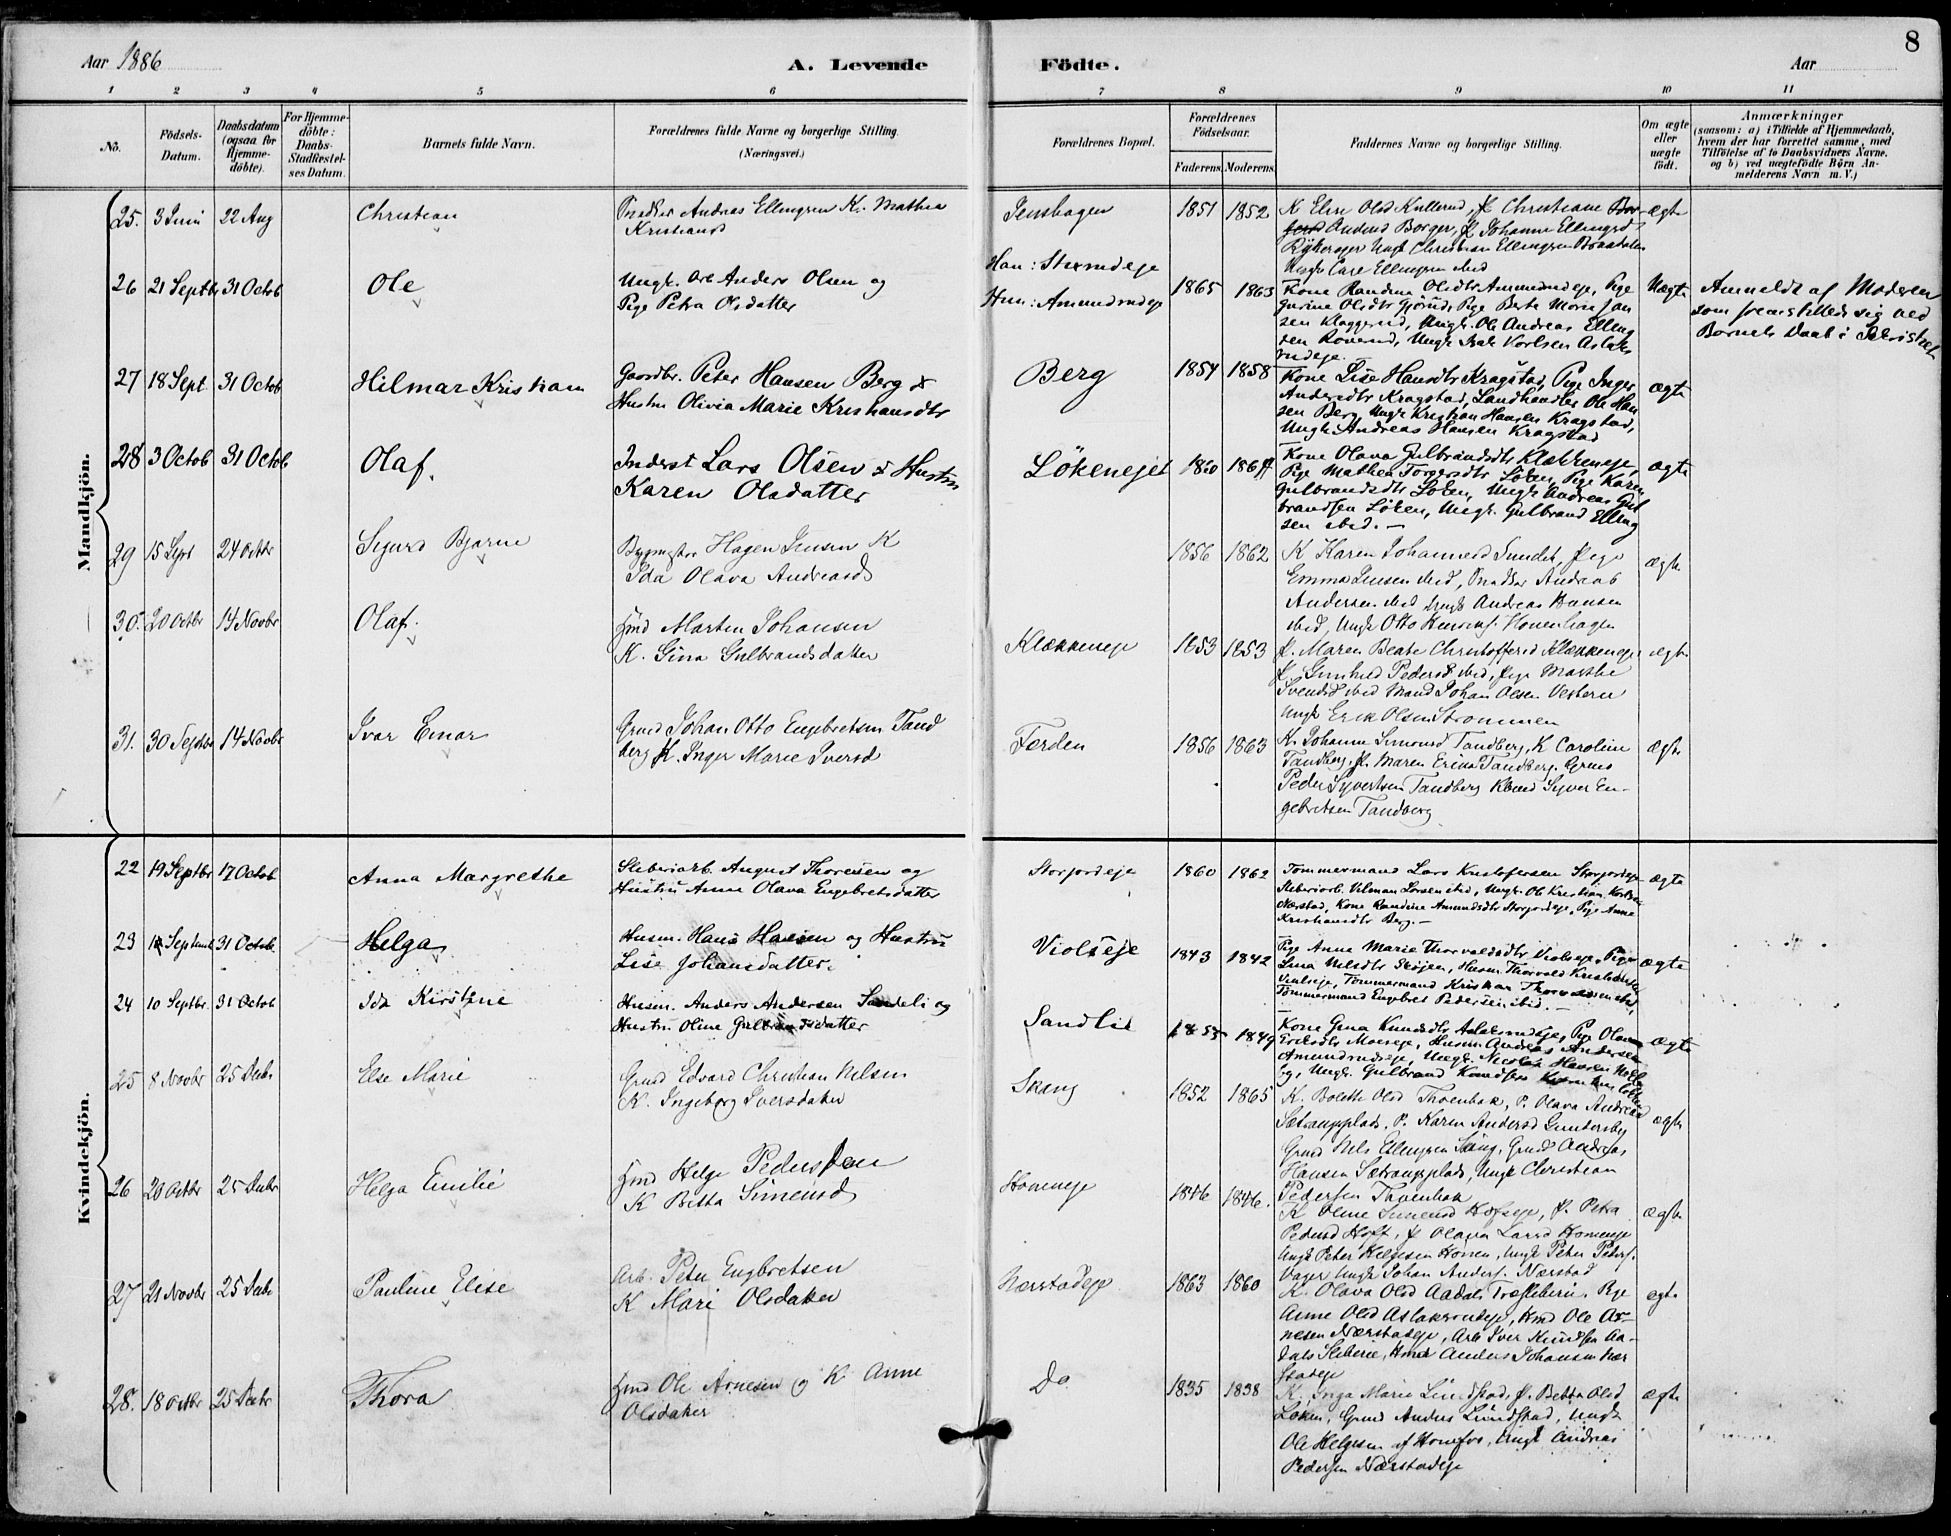 8
Aar 1886
A. Levende
Födte.
Aar
1 2 3 4 5 6 7 8 9 10 11
No.
Födsels-
Datum.
Daabsdatum
(ogsaa for
Hjemme-
döbte).
For Hjemme-
döbte:
Daabs-
Stadfæstel-
ses Datum.
Barnets fulde Navn.
Forældrenes fulde Navne og borgerlige Stilling.
(Næringsvei.)
Forældrenes Bopæl.
Forældrenes
Födselsaar.
Faderens. Moderens.
Faddernes Navne og borgerlige Stilling.
Om ægte
eller
uægte
født.
Anmærkninger
(saasom: a) i Tilfælde af Hjemmedaab,
hvem der har forrettet samme, med
Tilföielse af to Daabsvidners Navne,
og b) ved uægtefödte Börn An-
melderens Navn m. V.)
Mandkjön.
25. 3 Juni 22 Aug
Christian
Andreas Ellingsen K. Mathea
Kristiansd
Jenshagen
1851 1852
K Elise Olsd Kullerud, P Christiane
Anders Borger, P Johanne Ellingsd
Ungk Christian Ellingsen
ægte
26 21 Septbr 31 Octob
Ole
Ungk. Ole Anders Olsen og
Pige Petra Olsdatter
Han: Strømdeje
Hun: Amundrudeje
1865 1863
Kone Randine Olsdtr Amundrudeje, Pige
Gurine Olsdtr Gjørud, Pige Berte Marie Jan
sen Klaggerud, Ungk. Ole Andreas Elling
sen Roverud, Ungk Isak Karlsen Aslaks
rudeje.
Uægte
Anmeldt af Moderen
som fremstillede sig ved
Barnets Daab i
27 18 Sept 31 Octob
Hilmar Kristian
Gaardbr. Peter Hansen Berg &
Hustru Olivia Marie Kristiansdtr
Berg
1854 1858
Kone Lise Hansdtr Kragstad, Pige Inger
Andersdtr Kragstad, Landhandler Ole Han
sen Berg, Ungk Kristian Hansen Kragstad,
Ungk Andreas Hansen Kragstad
ægte
28 3 Octob 31 Octob
Olaf.
Inderst Lars Olsen & Hustru
Karen Olsdatter
Lökenejet
1860
Kone Olava Gulbrandsdtr Klækkeneje,
Pige Mathea Torgersdtr Löken, Pige Karen
Gulbrandsdtr Löken, Ungk Andreas Gul
brandsen Löken, Ungk. Gulbrand Elling
sen ibid. —
ægte
29 15 Sept 24 Octbr
Sigurd Bjarne
Bygmester Hagen Jensen K
Ida Olava Andreasd
1856 1862
K Karen Johannesd Sundet, Pige
Emma Jensen ibid, Andreas
Andersen ibid Ungk Andreas Hansen
ibid, Ungk Otto
ægte
30. 20 Octbr 14 Novbr
Olaf.
Hmd Martin Johansen
K. Gina Gulbrandsdatter
Klækkeneje
1853 1853
P. Maren Beate Christoffersd Klækkeneje
P. Gunhild Pedersd ibid, Pige Marthe
Svendsd ibid Mand Johan Olsen Vesteren
Ungk Erik Olsen Strømmen
ægte
31. 30 Septbr 14 Novbr
Ivar Einar
Grmd Johan Otto Engebretsen Tand
berg K. Inger Marie Iversd
Færden
1856 1863
K. Johanne Simonsd Tandberg, K Caroline
Tandberg, P. Maren Erika Tandberg. Grmd
Peder Syvertsen Tandberg Syver En-
gebretsen Tandberg
ægte
Kvindekjön.
22 19 Septbr 17 Octob
Anna Margrethe
Sliberiarb. August Thoresen og
Hustru Anne Olava Engebretsdatter
Storjordeje
1860 1862
Tømmermand Lars Kristofersen Storjordeje
Sliberiarb. Larsen ibid, Ungk. Ole Kristian Karlsen
Nærstad, Kone Randine Amundsdtr Storjordeje, Pige Anne
Kristiansdtr Berg. —
ægte
23 Septemb 31 Octob
Helga
Husm. Hans Hansen og Hustru
Lise Johansdatter.
Violseje
1843 1842
Pige Anne Marie Thorvaldsdtr Violseje, Pige
Lina Nilsdtr Skøjen, Husm Thorvald Kristiansen
Violseje, Tømmermand Kristian Thorvaldsen ibid,
Tømmermand Engebret Pedersen ibid. —
ægte
24 10 Septbr. 31 Octob
Ida Kirstine
Husm. Anders Andersen Sandeli og
Hustru Oline Gulbrandsdatter
Sandlie
1855 1849
Kone Gina Knudsdtr Aslaksrudeje, Pige Olava
Eriksdtr Moeseje, Husm Andreas Andersen
Amundrudeje, Ungk. Nicolai Hansen
Ungk. Gulbrand Knudsen
ægte
25 8 Novbr 25 Decbr
Else Marie
Grmd Edvard Christian Nilsen
K. Ingeborg Iversdatter
Skaug
1852 1865
K. Bolette Olsd Thoenbak, P. Olava Andersd
Sætrangplads, P. Karen Andersd Gundersby
Grmd Nils Ellingsen Grmd Andreas
Hansen Sætrangplads, Ungk Christian
Pedersen Thoenbak
ægte
26 20 Octbr 25 Decbr
Helga Emilie
Hmd Helge Pedersen
K Betha Simensd
Honeneje
1846 1846.
K Oline Simensd Hofseje, P. Petra
Pedersd Hoff, P Olava Larsd Honeneje
Ungk Peter Helgesen Honen, Ungk Peter Peders.
Vager Ungk Johan Anders. Nærstad
ægte
27 21 Novbr 25 Decbr
Pauline Elise
Arb. Peter Engbretsen
K Mari Olsdatter
Nærstadeje
1863 1860
K. Olava Olsd Aadals Træsliberi, Pige
Anne Olsd Aslaksrudeje, Hmd Ole Ar-
nesen Nærstadeje, Arb Iver Knudsen Aa-
dals Sliberie, Hmd Anders Johansen Nær
stadeje
ægte
28. 18 Octbr 25 Decbr
Thora
Hmd Ole Arnesen og K Anne
Olsdatter
Do
1835 1838
K. Inga Marie Lundstad, P. Betha Olsd
Løken, Grmd Anders Lundstad, Ungk
Ole Helgesen af Hønefos, Ungk Andreas
Pedersen Nærstadeje
ægte